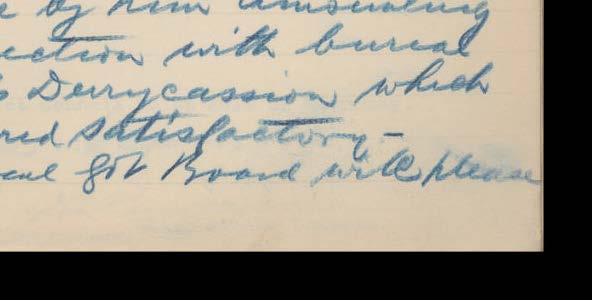 by him amounting
ection with burial
Derrycassion which
red satisfactory -
Govt Board will please